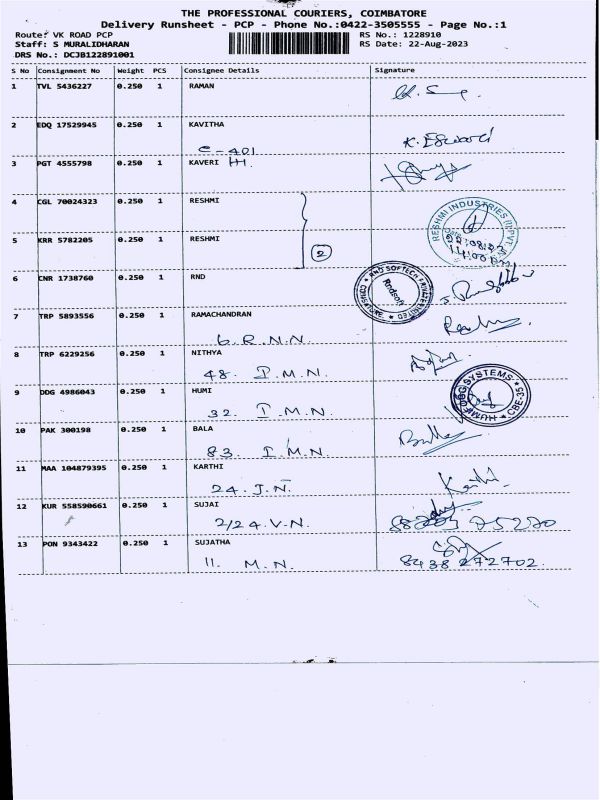 THE PROFESSIONAL COURIERS, COIMBATORE
Delivery Runsheet - PCP - Phone No.:0422-3505555 - Page No.:1
Route: VK ROAD PCP RS No.: 1228910
Staff: S MURALIDHARAN RS Date: 22-Aug-2023
DRS No.: DCJB122891001
S No Consignment No Weight PCS Consignee Details Signature
1 TVL 5436227 0.250 1 RAMAN
2 EDQ 17529945 0.250 1 KAVITHA
C-401
3 PGT 4555798 0.250 1 KAVERI
4 CGL 70024323 0.250 1 RESHMI
RESHMI INDUSTRIES (I) PVT
5 KRR 5782205 0.250 1 RESHMI
2
6 CNR 1738760 0.250 1 RND
RND SOFTECH PRIVATE LIMITED * COIMBATORE *
Rndsoft
7 TRP 5893556 0.250 1 RAMACHANDRAN
6. R.N.N.
8 TRP 6229256 0.250 1 NITHYA
48. I.M.N.
9 DDG 4986043 0.250 1 HUMI
32. I.M.N.
SYSTEMS * CBE-35
10 PAK 300198 0.250 1 BALA
83. I.M.N
11 MAA 104879395 0.250 1 KARTHI
24. J.N. Karthi
12 KUR 558590661 0.250 1 SUJAI
2/24. V.N. 75270
13 PON 9343422 0.250 1 SUJATHA
11. M.N. 8438 272702.